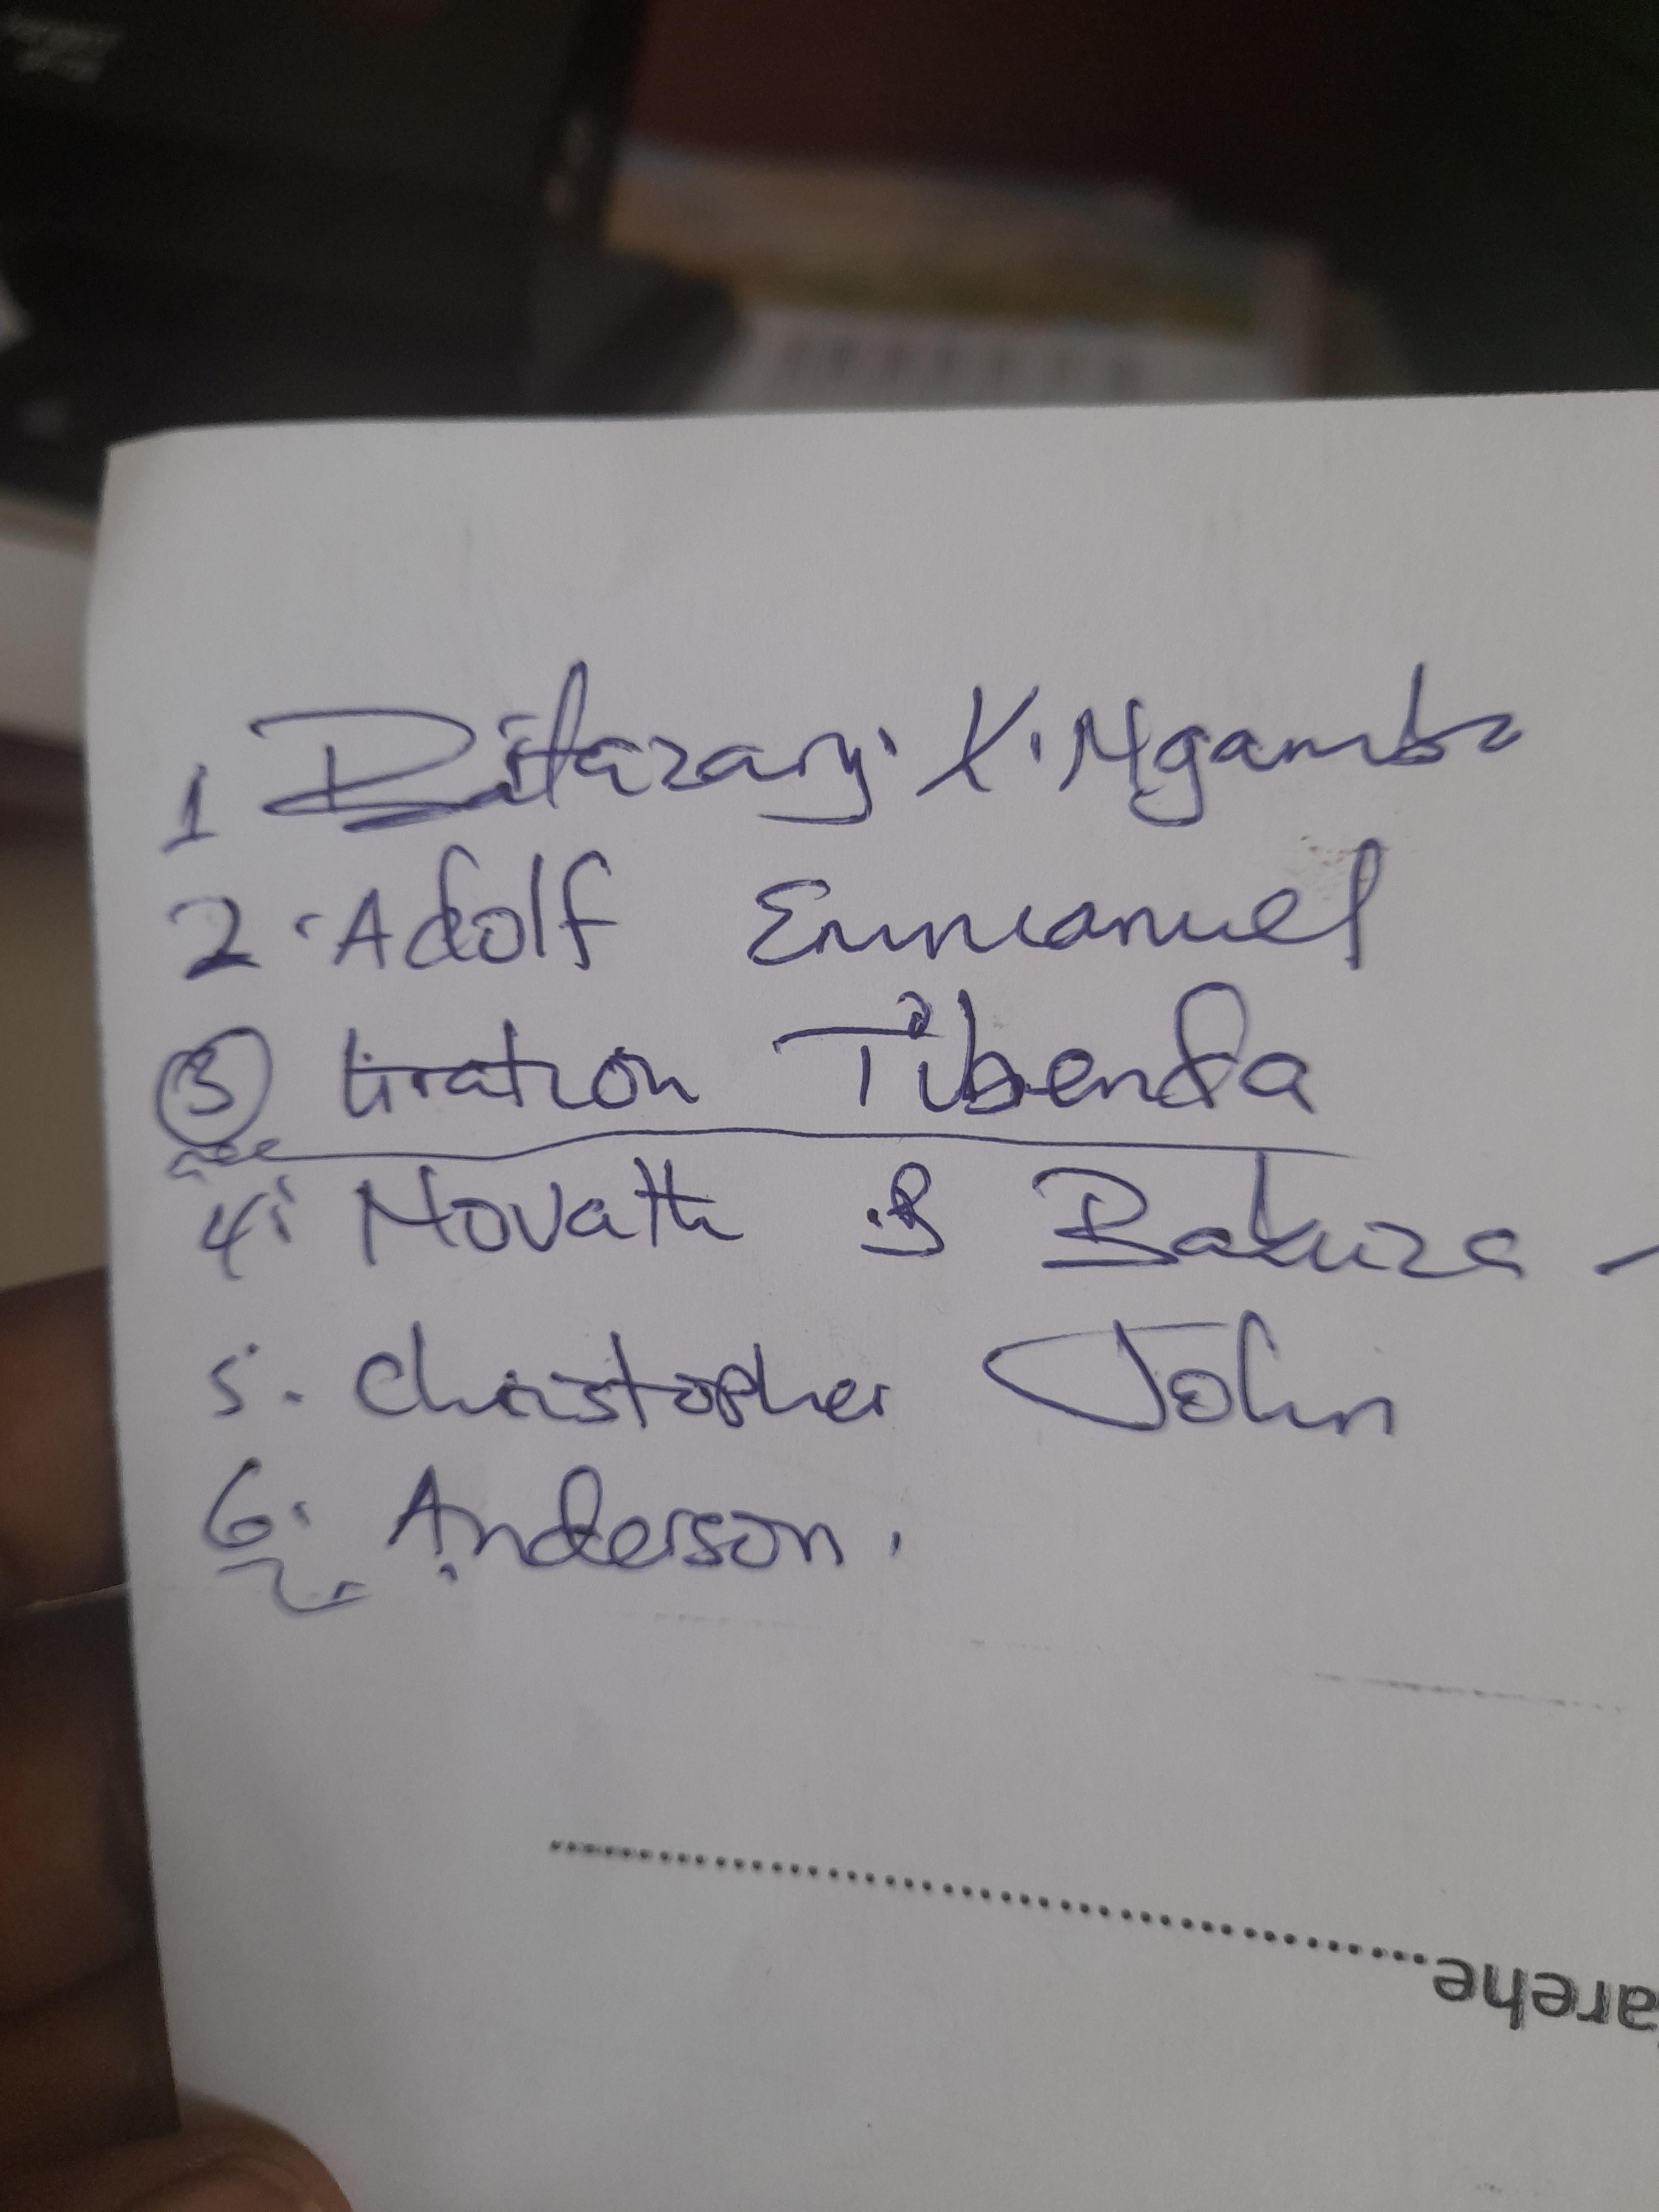 1 Bitazary. K. Mgamba
2. Adolf Emmanuel
3 Gration Tibenda
4. Novath B Bakuza
5. Christopher John
6. Anderson.
arehe....................